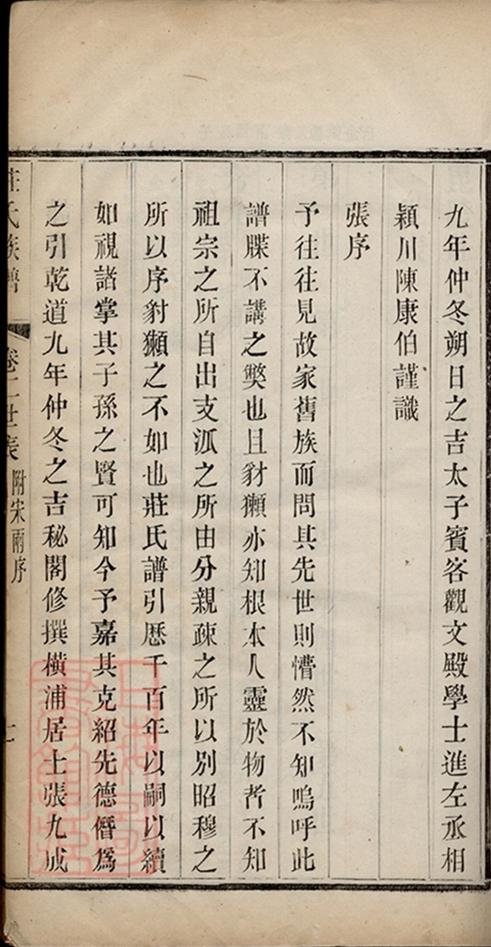 九年仲冬朔日之吉太子賓客觀文殿學士進左丞相
潁川陳康伯謹識
張序
予往往見故家舊族而問其先世則懵然不知嗚呼此
譜牒不講之獘也且豺獺亦知根本人靈於物者不知
祖宗之所自出支泒之所由分親疎之所以别昭穆之
所以序豺獺之不如也莊氏譜引歴千百年以嗣以續
如視諸掌其子孫之賢可知今予嘉其克紹先德僭爲
之引乾道九年仲冬之吉秘閣修撰橫浦居士張九成
莊氏族譜 卷二世表 附宋兩序